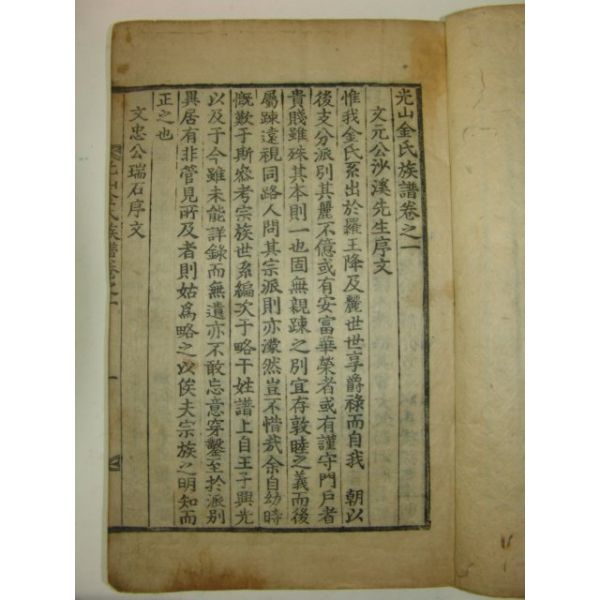 光山金氏族譜卷之一
文元公沙溪先生序文
惟我金氏系出於羅王降及麗世世享爵祿而自我 朝以
後支分派別其麗不億或有安富華榮者或有謹守門戶者
貴賤雖殊其本則一也固無親踈之別宜存敦睦之義而後
屬踈遠視同路人問其宗派則亦濛然豈不惜哉余自幼時
慨歎于斯叅考宗族世系編次于略干姓譜上自王子興光
以及于今雖未能詳錄而無遺亦不敢忘意穿鑿至於派別
異居有非管見所及者則姑爲略之以俟夫宗族之明知而
正之也
文忠公瑞石序文
光山金氏族譜卷之一 一